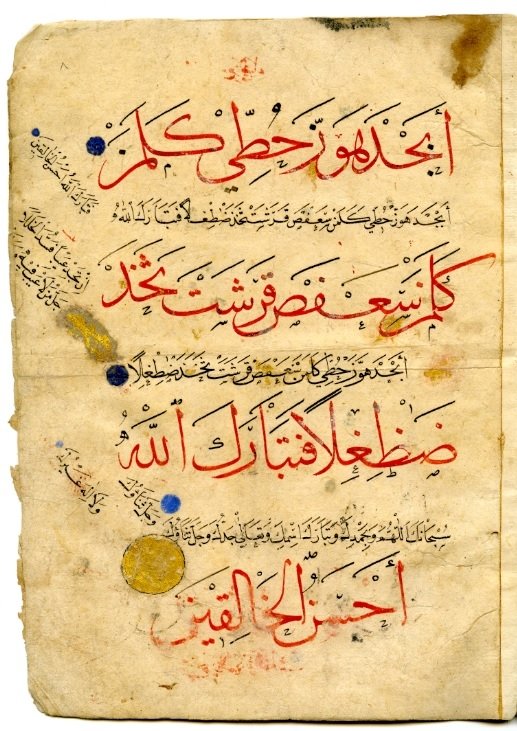 أبجد هوز حطي كلمن
أبجد هوز حطي كلمن سعفص قرشت ثخذ ضظغلا فتبارك الله
كلمن سعفص قرشت ثخذ
أبجد هوز حطي كلمن سعفص قرشت ثخذ ضظغلا
ضظغلا فتبارك الله
سبحانك اللهم وبحمدك وتبارك اسمك وتعالى جدك وجل ثناؤك
أحسن الخالقين
فتبارك الله أحسن الخالقين
وجل ثناؤك
ولا إله غيرك